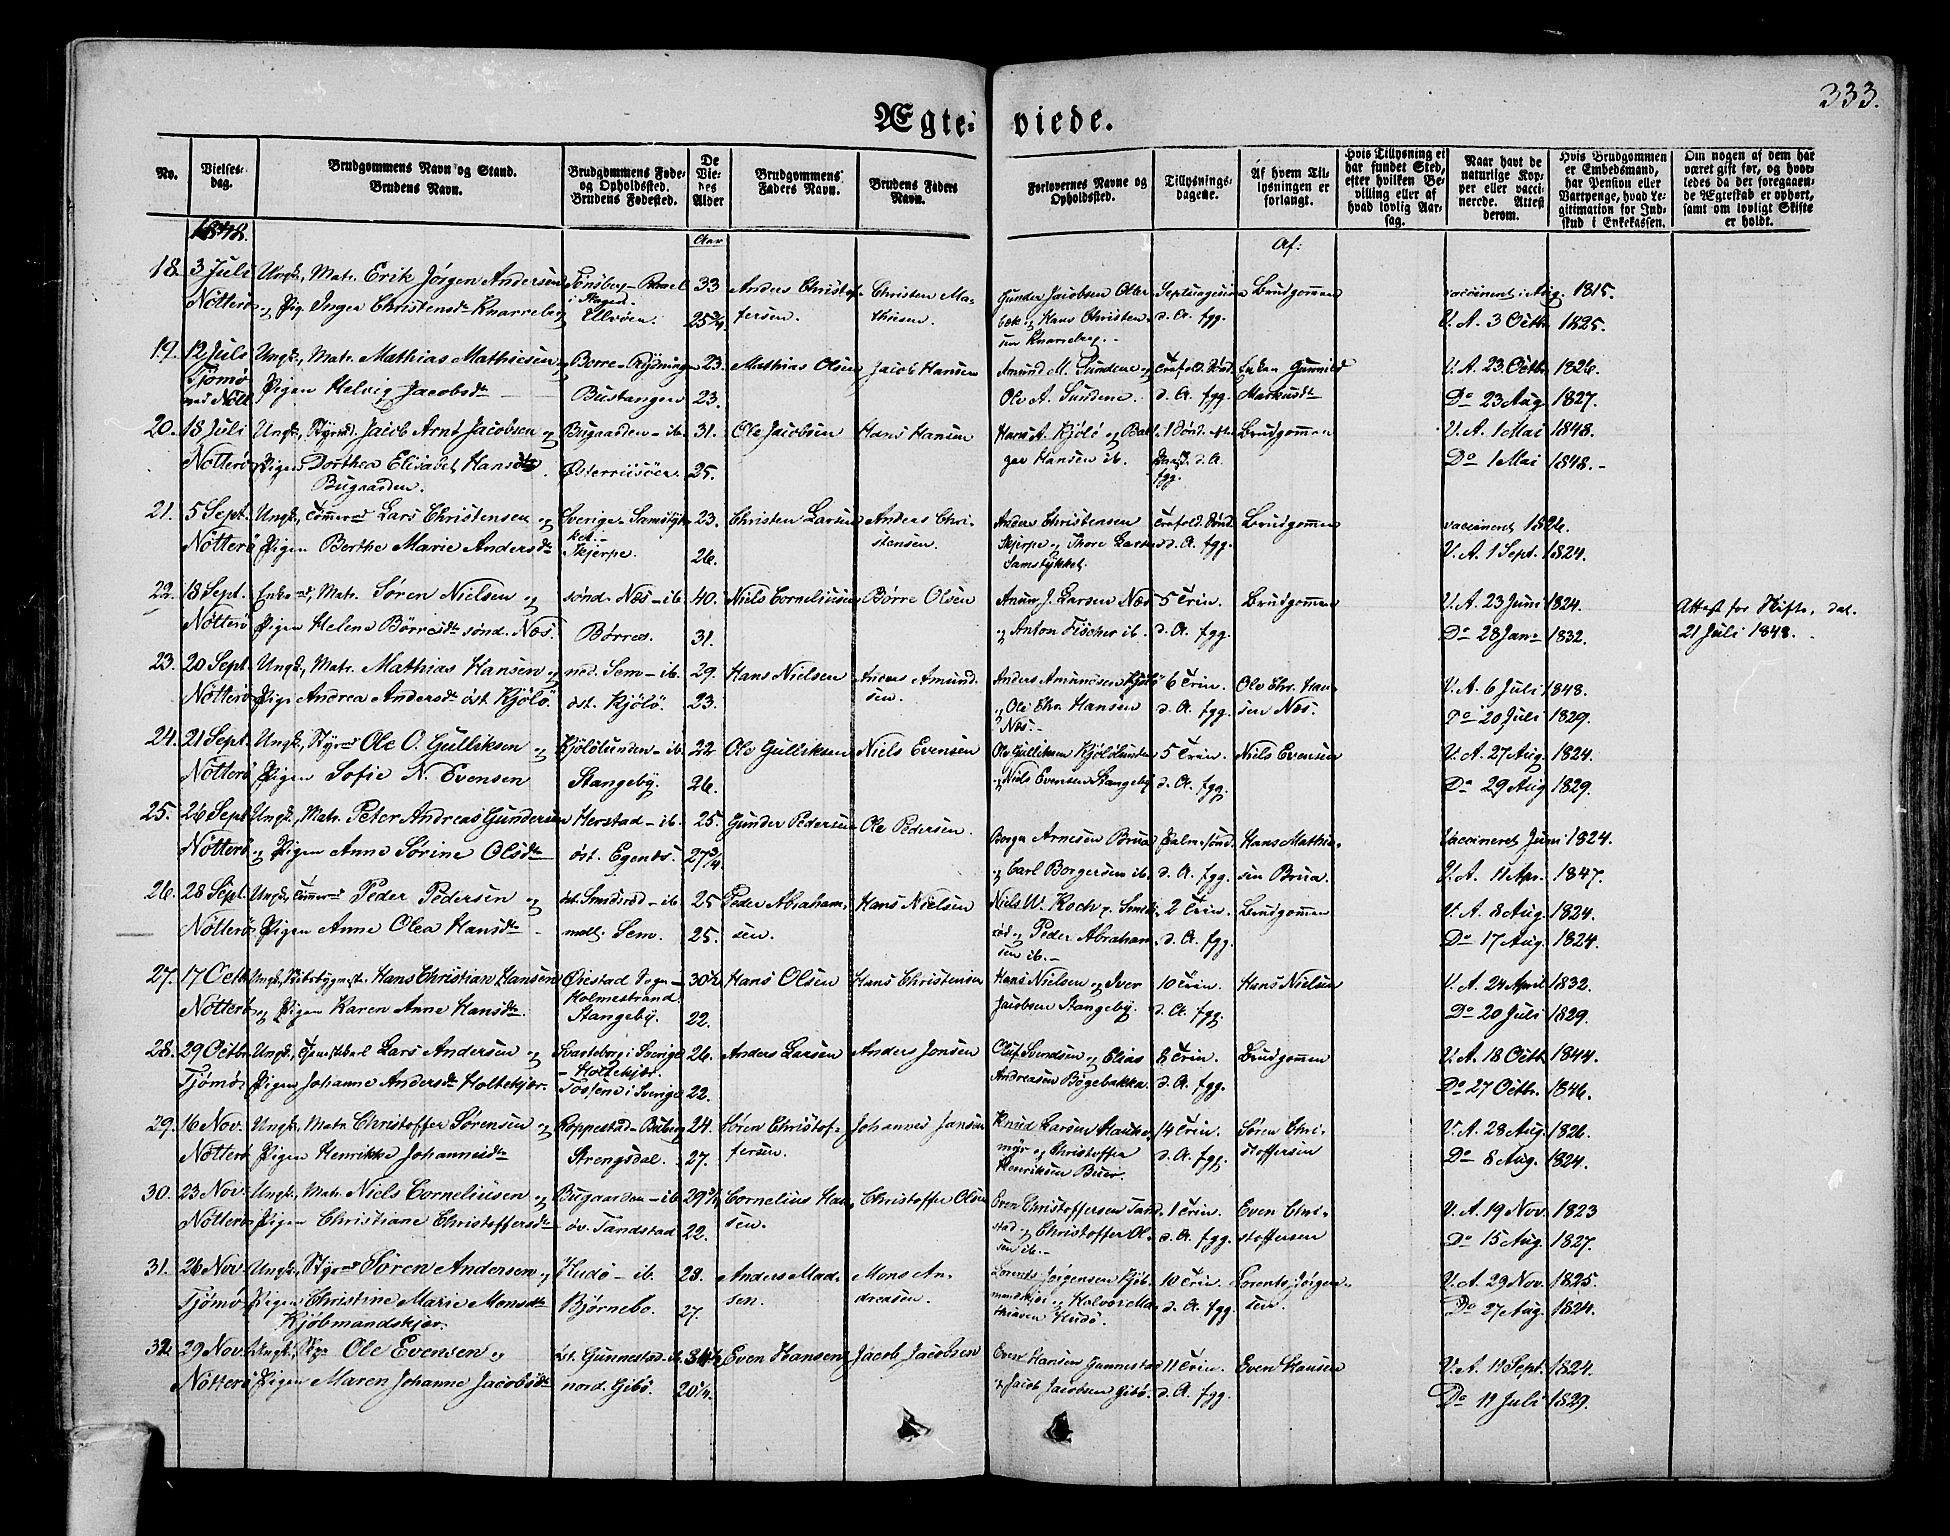 333.
Ægteviede.
No.
Vielsesdag.
Brudgommens Navn og Stand.
Brudens Navn.
Brudgommens Føde- og Opholdssted.
Brudens Fødested.
De Viedes Alder
Brudgommens Faders Navn.
Brudens Faders Navn.
Forlovernes Navne og Opholdssted.
Tillysningsdagene.
Af hvem Tillysningen er forlangt.
Hvis Tillysning ei har fundet Sted, efter hvilken Bevilling eller af hvad lovlig Aarsag.
Naar havt de naturlige Kopper eller vaccinerede. Attest derom.
Hvis Brudgommen er Embedsmand, har Pension eller Vartpenge, hvad Legitimation for Indskud i Enkekassen.
Om nogen af dem har været gift før, og hvorledes da der foregaaende Ægteskab er ophørt, samt om lovligt Skifte er holdt.
1848.
Aar
Af:
18. 3 Juli Ungk., Matr. Erik Jörgen Andersen Tönsberg 33 Anders Christof- Christen Ma- Gunder Jacobsen Septuagesima Brudgommen vaccineret i Aug. 1815.
Nötterö og Pig. Inger Christensdr Knarreberg Ulvöen. 25 3/4 fersen. thisen. bek og Hans Christen- d. A. fgg. V. A. 3 Octb 1825.
sen Knarreberg.
19. 12 Juli Ungk., Matr. Mathias Mathisen og Borre - Rydningen 23. Mathias Olsen Jacob Hansen Amund M. Sundene og Trefold. Sönd. Enken Gunnild V. A. 23 Octb 1826.
Tjömö Pigen Helvig Jacobsdr Bustangen 23. Ole A. Sundene. d. A. fgg. Markusdr Do 23 Aug. 1827.
20. 18 Juli Ungk., Styrmd. Jacob Arnt Jacobsen og Bugaarden - ib. 31. Ole Jacobsen Hans Hansen Hans A. Kjölö og 1 Sönd. Brudgommen V. A. 1 Mai 1848.
Nötterö Pigen Dorthea Elisabet Hansdr Österriisöer. 25. ger Hansen ib. d. A. Do 1 Mai 1848.-
Bugaarden. fgg.
21. 5 Sept. Ungk., Tömmermd Lars Christensen og Sverige - Samstyk- 23. Christen Larsen Anders Chri- Anders Christensen Trefold. Sönd. Brudgommen vaccineret 1826.
Nötterö Pigen Berthe Marie Andersdr ket.- Skjerpe. 26. stensen. Skjerpe og Thore Larsen d. A. fgg. V. A. 1 Sept. 1824.
Samstykket.
22. 18 Sept. Enkemd, Matr. Sören Nielsen og sönd. Næs - ib. 40. Niels Corneliusen Börre Olsen J. Larsen Næs 5 Trin. Brudgommen V. A. 23 Juni 1824. Attest for Skifte, dat.
Nötterö Pigen Helene Börresdr sönd. Næs. Börres. 31. og Anton Fischer ib. d. A. fgg. Do 28 Jan. 1832. 21 Juli 1848.
23. 20 Sept. Ungk., Matr. Mathias Hansen og ned. Sem - ib. 29. Hans Nielsen Anders Amund- Anders Amundsen Kjölö 6 Trin. Ole Chr. Han- V. A. 6 Juli 1848.
Nötterö Pige Andrea Andersdr öst. Kjölö. öst. Kjölö. 23. sen. og Ole Chr. Hansen d. A. fgg. sen Næs. Do 20 Juli 1829.
Næs.-
24. 21 Sept. Ungk., Styrmd Ole O. Gulliksen og Kjölölunden - ib. 22 Ole Gulliksen Niels Evensen Ole Gulliksen Kjölölunden 5 Trin. Niels Evensen V. A. 27 Aug. 1824.
Nötterö Pigen Sofie N. Evensen Stangeby. 26. og Niels Evensen Stangeby d. A. fgg. Do 29 Aug. 1829.
25. 26 Sept. Ungk., Matr. Peter Andreas Gundersen Herstad - ib. 25. Gunder Pedersen Ole Pedersen. Borger Arnesen Brua Palmesönd. Hans Mathi- Vaccineret Juni 1824.
Nötterö og Pigen Anne Sörine Olsdr öst. Egenæs. 27 3/4 og Carl Borgersen ib. d. A. fgg. sen Brua. V. A. 11 Apr. 1847.
26. 28 Sept. Ungk., Tömmermd Peder Pedersen og öst. Smidsröd - ib. 25 Peder Abraham- Hans Nielsen Niels W. Koch p. Smids- 2 Trin. Brudgommen V. A. 8 Aug. 1824.
Nötterö Pigen Anne Olea Hansdr mell. Sem. 25. sen. röd og Peder Abraham- d. A. fgg. Do 17 Aug. 1824.
sen ib.-
27. 17 Octb. Ungk., Skibsbygmstr. Hans Christian Hansen Öiestad Sogn - 30 1/2 Hans Olsen Hans Christensen Hans Nielsen og Iver 10 Trin. Hans Nielsen V. A. 24 April 1832.
Nötterö og Pigen Karen Anne Hansdr. Holmestrand. Stangeby. 22. Jacobsen Stangeby. d. A. fgg. Do 20 Juli 1829.
28. 29 Octbr. Ungk., Tjenestkarl Lars Andersen og Svarteborg i Sverige 26. Anders Larsen Anders Jonsen Oluf Svendsen og Elias 8 Trin. Brudgommen V. A. 18 Octb. 1844.
Tjömö. Pigen Johanne Andersdr Holtekjær. - Holtekjær. Tossene i Sverige 22. Andreasen Bögebakka. d. A. fgg. Do 27 Octbr. 1846.
29. 16 Nov. Ungk., Matr. Christoffer Sörensen og Roppestad - Buberg 24. Sören Christof- Johannes Jansen Knud Larsen Hauke- 14 Trin. Sören Chri- V. A. 28 Aug. 1826.
Nötterö Pigen Henrikke Johannesdr Strengsdal. 27. fersen. myr og Christoffer d. A. fgg. stoffersen Do 8 Aug. 1824.
Henriksen Buer.
30. 23 Nov. Ungk., Matr. Niels Corneliusen og Bugaarden - ib. 29 3/4 Cornelius Han- Christoffer Olsen Even Christoffersen Tand- 1 Trin. Even Chri- V. A. 19 Nov. 1823
Nötterö Pigen Christiane Christoffersdr öv. Tandstad 22. sen. stad og Christoffer Ol- d. A. fgg. stoffersen Do 15 Aug. 1827.
sen ib.-
31. 26 Nov. Ungk., Styrmd Sören Andersen og Hudö - ib. 28. Anders Mad- Mons An- Lorents Jörgensen Kjöb- 10 Trin. Lorents Jörgen- V. A. 29 Nov. 1825.
Tjömö Pigen Christine Marie Monsdr Björnebo. 27. sen. dreasen. mandskjær og Halvor Ma- d. A. fgg. sen. Do 27 Aug. 1824.
Kjöbmandskjær. thisen Hudö.
32. 29 Nov. Ungk., Styr Ole Evensen og öst. Gunnestad - ib. 34 1/2 Even Hansen Jacob Jacobsen Even Hansen Gunnestad 11 Trin. Even Hansen V. A. 11 Sept. 1824.
Nötterö Pigen Maren Johanne Jacobsdr nord. Gibö. 20 1/4. og Jacob Jacobsen Gibö. d. A. fgg. Do 11 Juli 1829.